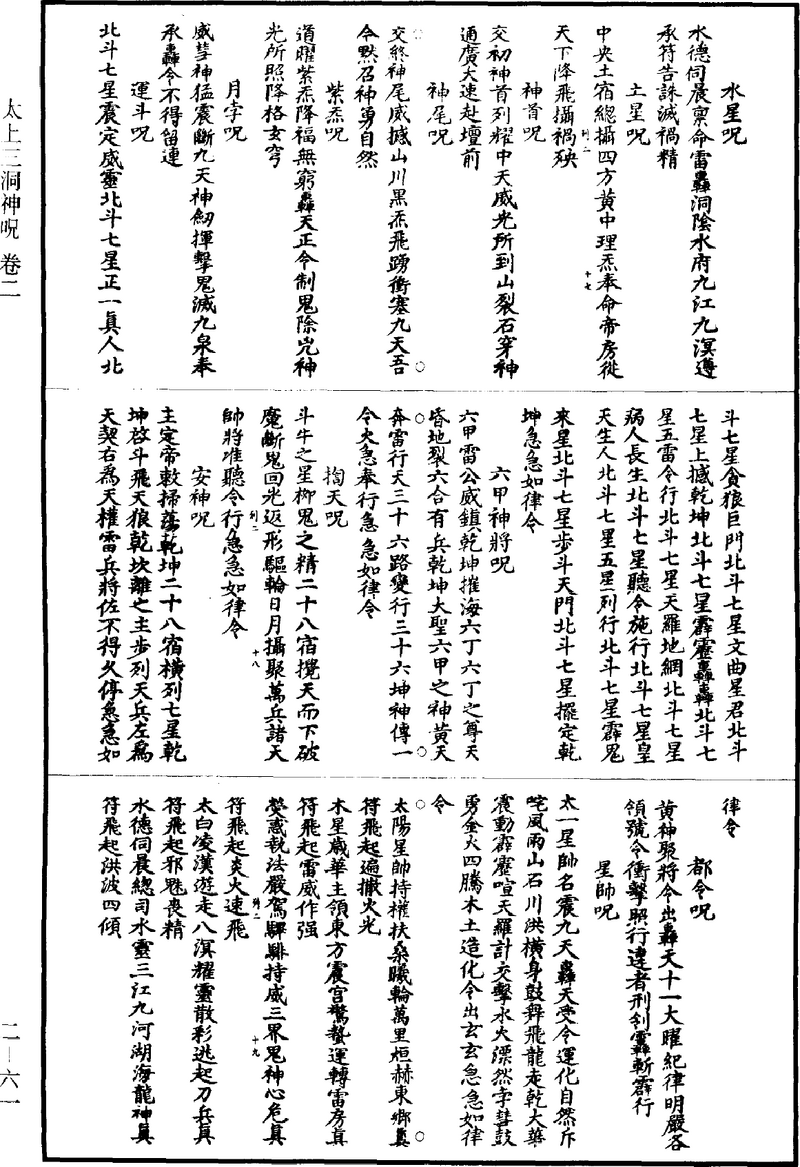 水星呪
水德伺晨禀命雷轟洞陰水府九江九溟遵
承符告誅滅禍精
土星呪
中央土宿總攝四方黄中理炁奉命帝房從
天下降飛攝禍殃
神首呪
交初神首列耀中天威光所到山裂石穿神
通廣大速赴壇前
神尾呪
交終神尾威撼山川黒炁飛踴衝塞九天吾
今黙召神勇自然
紫炁呪
道曜紫炁降福無窮轟天正令制鬼除㐫神
光所照降格玄穹
月孛呪
威彗神猛震斷九天神劒揮擊鬼滅九泉奉
承轟令不得留連
運斗呪
北斗七星震定威靈北斗七星正一真人北
十七
斗七星貪狼巨門北斗七星文曲星君北斗
七星上撼乾坤北斗七星霹靂轟轟北斗七
星五雷令行北斗七星天羅地網北斗七星
病人長生北斗七星聽令施行北斗七星皇
天生人北斗七星五星列行北斗七星霹鬼
來星北斗七星步斗天門北斗七星擺定乾
坤急急如律令
六甲神將呪
六甲雷公威鎮乾坤摧海六丁六丁之尊天
昏地裂六合有兵乾坤大聖六甲之神黄天
奔雷行天三十六路變行三十六坤神傳一
令火急奉行急急如律令
掏天呪
斗牛之星柳鬼之精二十八宿攪天而下破
魔斷鬼回光返形驅輪日月攝聚萬兵諸天
帥將准聽令行急急如律令
安神呪
主定帝敕掃蕩乾坤二十八宿横列七星乾
坤啓斗飛天狼乾坎離之主步列天兵左爲
天契右爲天權雷兵將佐不得久停急急如
十八
律令
都令呪
黄神聚將令出轟天十一大曜紀律明嚴各
領號令衝擊照行違者刑剳轟斬霹行
星帥呪
太一星帥名震九天轟天受令運化自然斥
咤風雨山石川洪横身鼓舞飛龍走乾大華
震動霹靂喧天羅計交擊水火漂然孛彗鼓
勇金火四騰木土造化令出玄玄急急如律
令
太陽星帥持權扶桑曦輪萬里烜赫東鄉真
符飛起遍撒火光
木星歲華主領東方震宫驚蟄運轉雷房真
符飛起雷威作强
熒惑執法嚴駕騨騑持威三界鬼神心危真
符飛起炎火速飛
太白凌漢遊走八溟耀靈散彩逃起刀兵真
符飛起邪魅喪精
水德伺晨總司水靈三江九河湖海龍神真
符飛起洪波四傾
十九
太上三洞神呪 卷二
二—六一